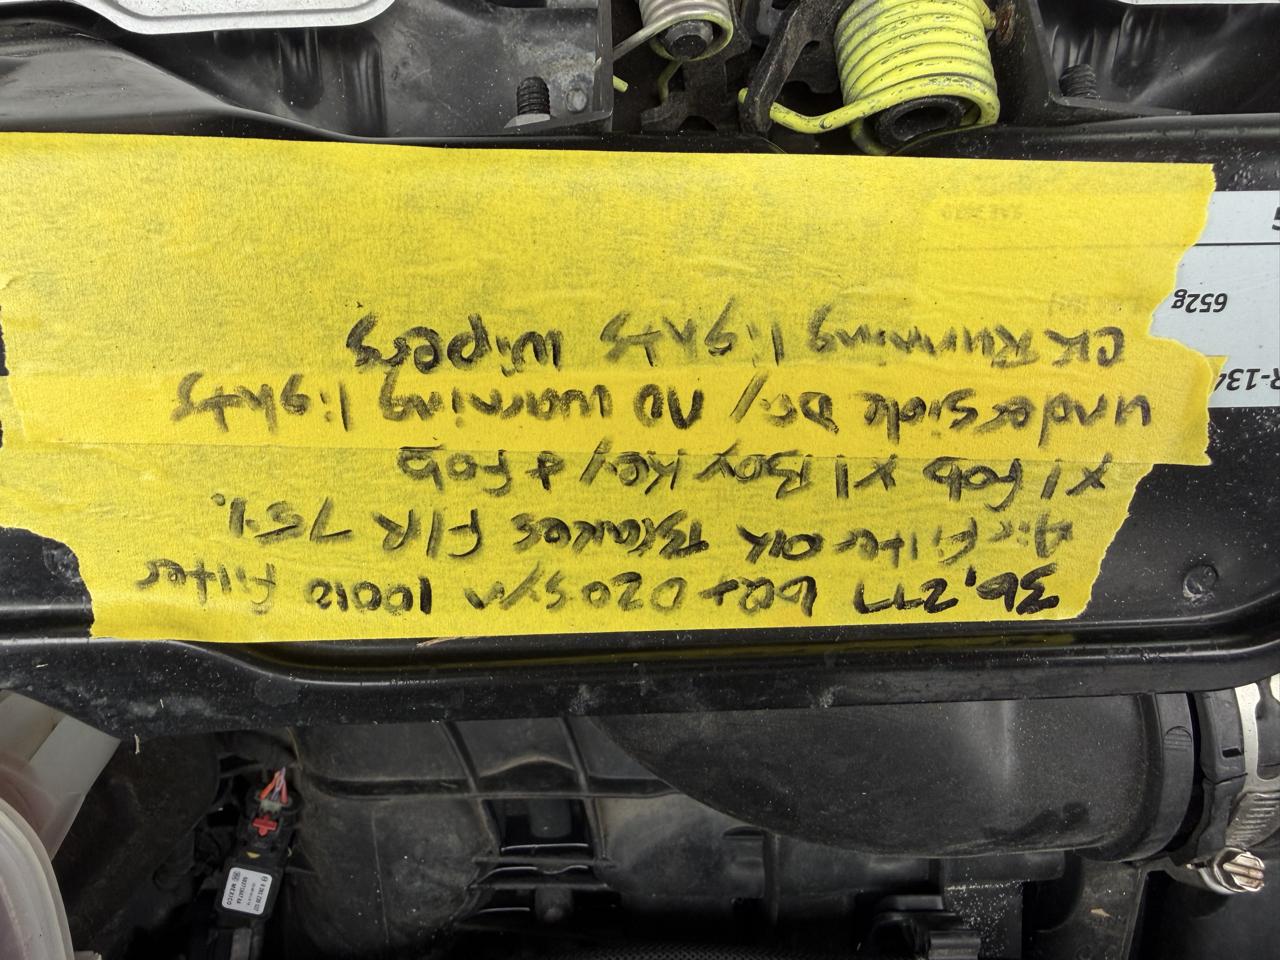 36,277 6Qt 020 syn 10010 filter
Air filter ok Brakes F/R 75%.
x1 fob x1 Box Key & fob
underside Dry / no warning lights
ck Running lights wipers
R-134
652g
MEXICO